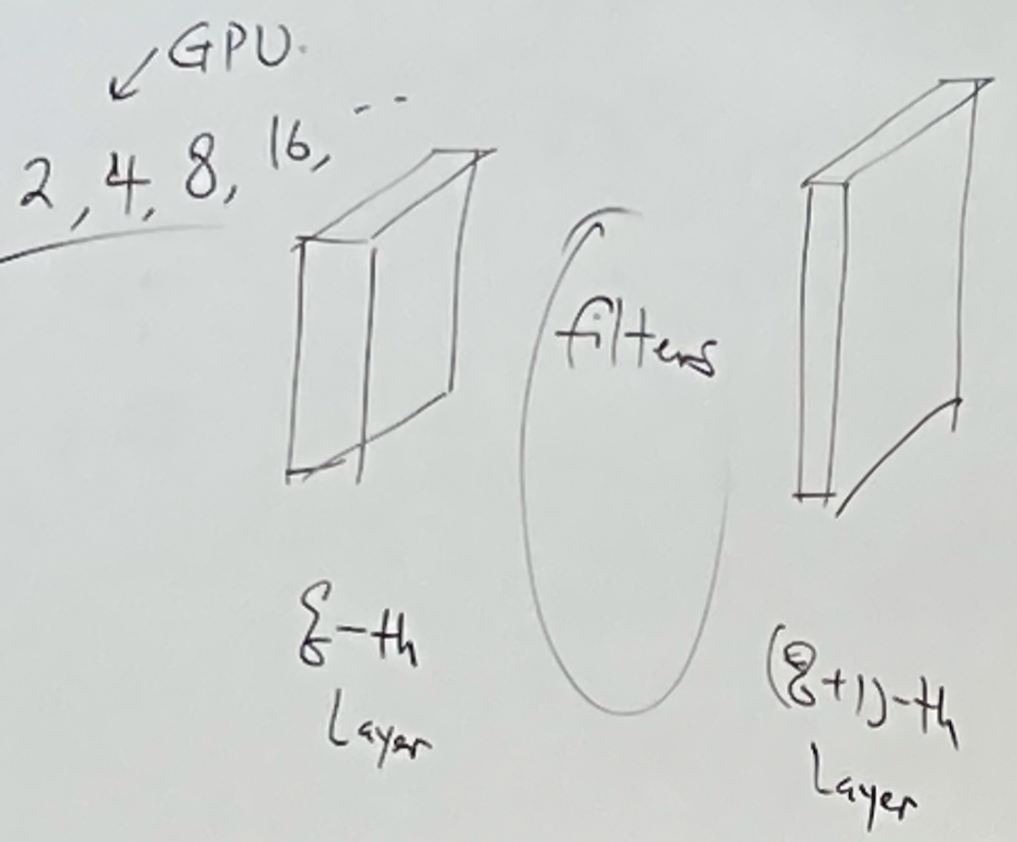 GPU.
2, 4, 8, 16, ...
filters
ξ-th
Layer
(ξ+1)-th
Layer